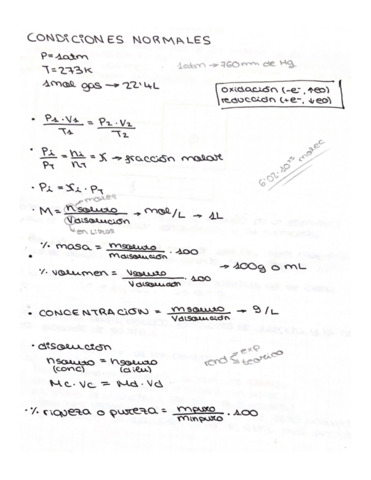 CONDICIONES NORMALES
P = 1atm
1atm → 760mm de Hg
T = 273K
1mol gas → 22'4L
oxidación (-e⁻, ↑eo)
reducción (+e⁻, ↓eo)
· P₁·V₁/T₁ = P₂·V₂/T₂
· Pi/PT = ni/nT = X → fracción molar
6'02·10²³ molec
· Pi = Xi · PT
moles
· M = nsoluto/Vdisolución → mol/L → 1L
en Litros
% masa = msoluto/mdisolución · 100
% volumen = Vsoluto/Vdisolución · 100
→ 100g o mL
· CONCENTRACIÓN = msoluto/Vdisolución → g/L
· disolución
nsoluto = nsoluto
(conc) (dilu)
rend = exp/teórico
Mc · Vc = Md · Vd
· % riqueza o pureza = mpuro/mimpuro · 100